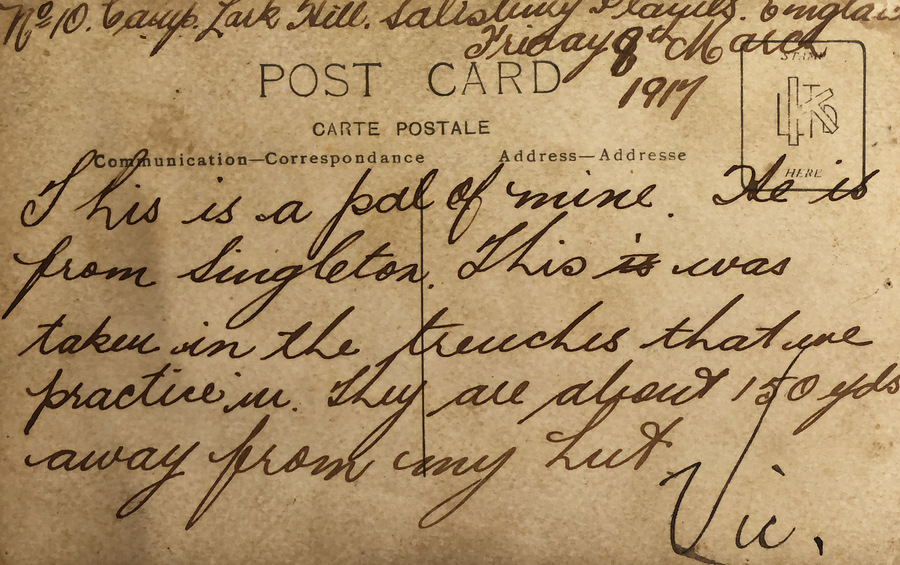 Nº 10. Camp. Lark Hill. Salisbury Plains. Englan
Friday 8th March
1917
POST CARD
CARTE POSTALE
Communication—Correspondance
Address—Addresse
STAMP
HERE
This is a pal of mine. He is
from Singleton. This is was
taken in the trenches that we
practice in. They are about 150 yds
away from my hut
Vic.